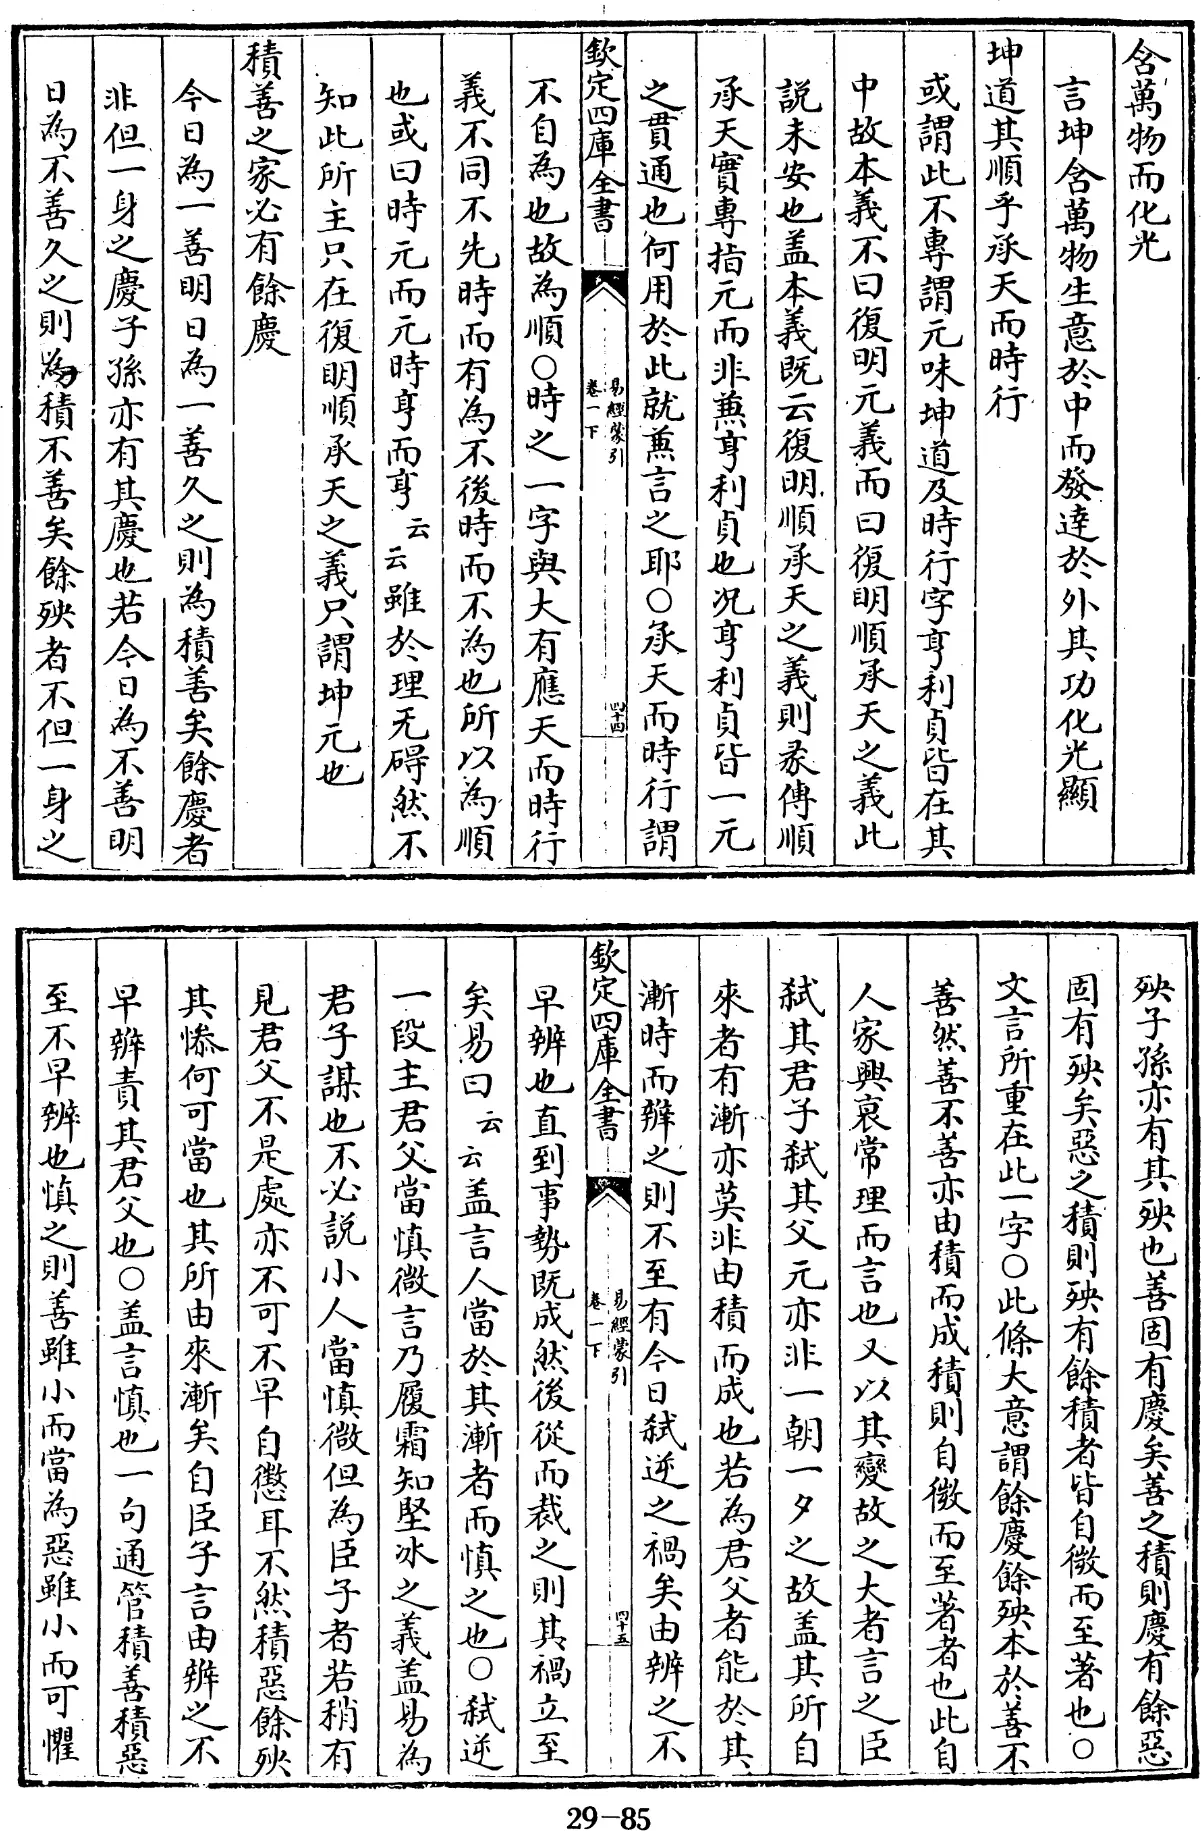 含萬物而化光
言坤含萬物生意於中而發逹於外其功化光顯
坤道其順乎承天而時行
或謂此不專謂元味坤道及時行字亨利貞皆在其
中故本義不曰復明元義而曰復明順承天之義此
説未安也盖本義既云復明順承天之義則彖傳順
承天實專指元而非兼亨利貞也况亨利貞皆一元
之貫通也何用於此就兼言之耶○承天而時行謂
欽定四庫全書
易經蒙引
卷一下
四十四
不自為也故為順○時之一字與大有應天而時行
義不同不先時而有為不後時而不為也所以為順
也或曰時元而元時亨而亨云云雖於理无碍然不
知此所主只在復明順承天之義只謂坤元也
積善之家必有餘慶
今日為一善明日為一善久之則為積善矣餘慶者
非但一身之慶子孫亦有其慶也若今日為不善明
日為不善久之則為積不善矣餘殃者不但一身之
殃子孫亦有其殃也善固有慶矣善之積則慶有餘惡
固有殃矣惡之積則殃有餘積者皆自微而至著也○
文言所重在此一字○此條大意謂餘慶餘殃本於善不
善然善不善亦由積而成積則自微而至著者也此自
人家興衰常理而言也又以其變故之大者言之臣
弑其君子弑其父元亦非一朝一夕之故盖其所自
來者有漸亦莫非由積而成也若為君父者能於其
漸時而辨之則不至有今日弑逆之禍矣由辨之不
欽定四庫全書
易經蒙引
卷一下
四十五
早辨也直到事勢既成然後從而裁之則其禍立至
矣易曰云云盖言人當於其漸者而慎之也○弑逆
一段主君父當慎微言乃履霜知堅冰之義盖易為
君子謀也不必説小人當慎微但為臣子者若稍有
見君父不是處亦不可不早自懲耳不然積惡餘殃
其慘何可當也其所由來漸矣自臣子言由辨之不
早辨責其君父也○盖言慎也一句通管積善積惡
至不早辨也慎之則善雖小而當為惡雖小而可懼
29-85